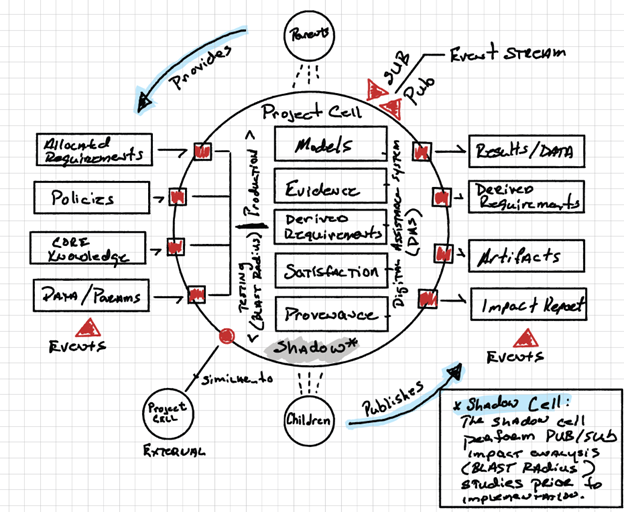 Parents
Provides
SUB
Pub
Event Stream
Project Cell
Allocated
Requirements
Policies
Core
Knowledge
Data/Params
Events
Testing
(Blast Radius)
< Production >
Models
Evidence
Derived
Requirements
Satisfaction
Provenance
Shadow*
Digital Assistance System
(DAS)
Results/Data
Derived
Requirements
Artifacts
Impact Report
Events
Project
Cell
External
Children
Publishes
* Shadow Cell:
The shadow cell
perform PUB/SUB
impact analysis
(Blast Radius)
studies prior to
implementation.